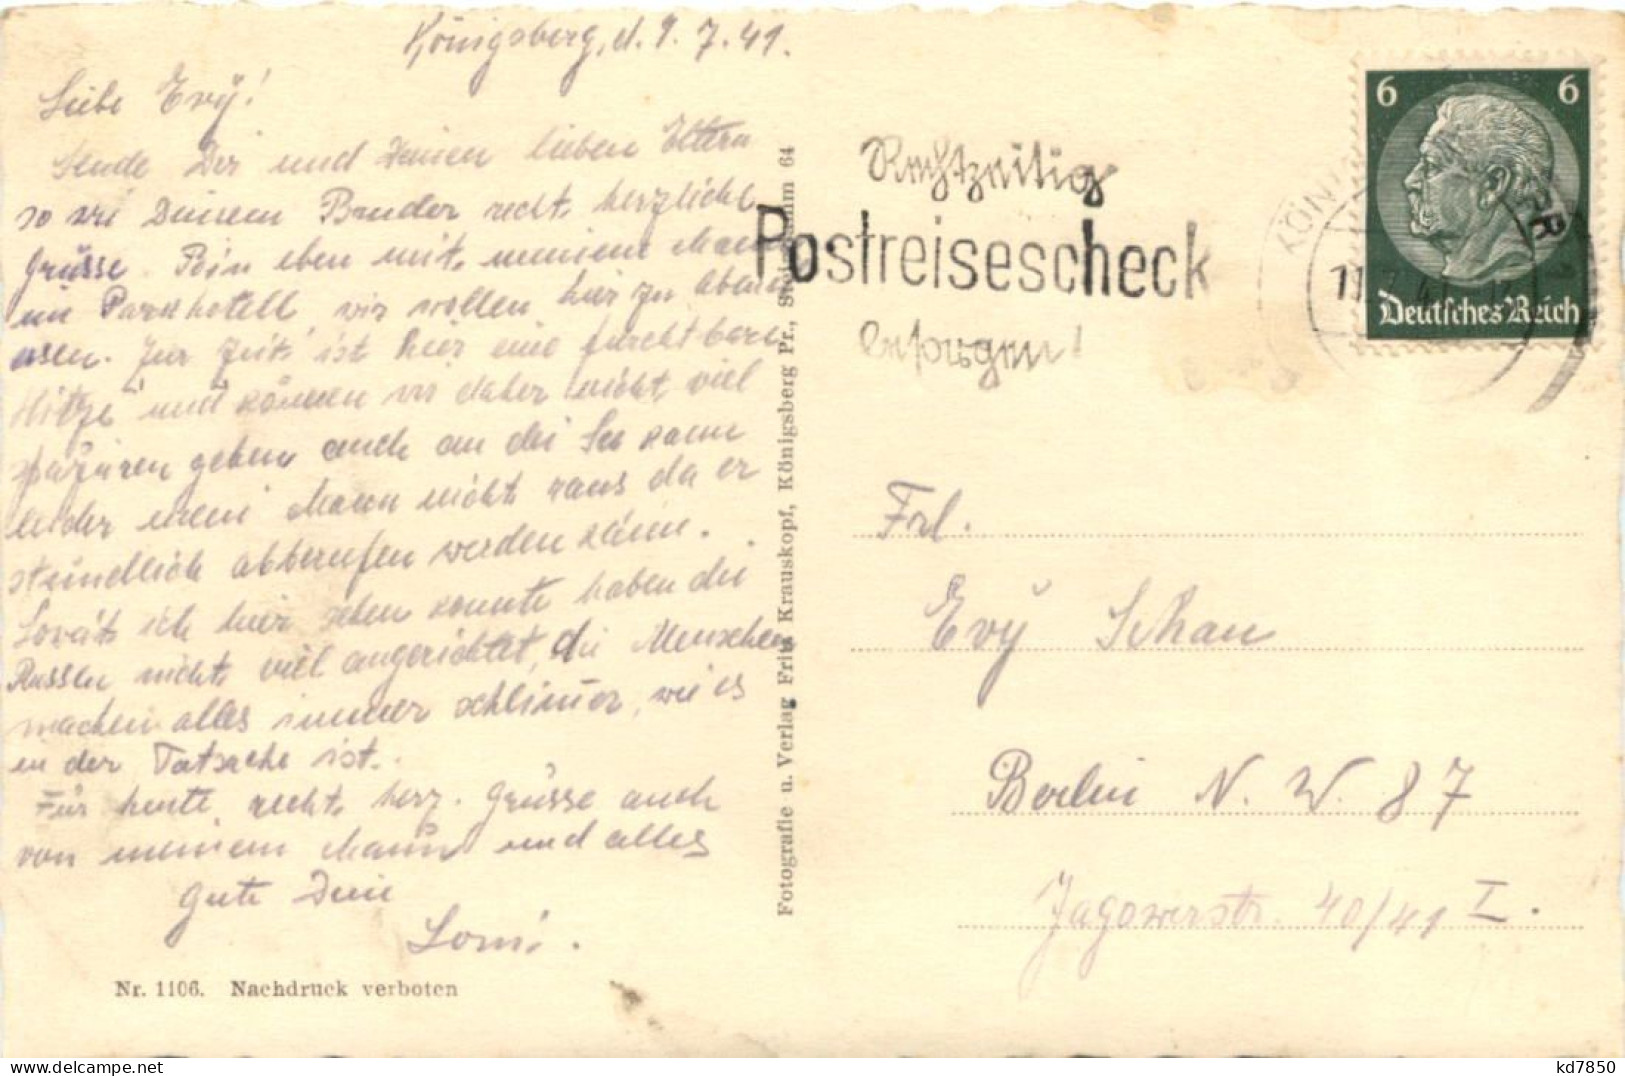 Königsberg, d. 9. 7. 41.
Liebe Evÿ!
Sende Dir und Deinen lieben Eltern
so wie Deinem Bruder recht herzliche
Grüsse. Bin eben mit meinem Mann
im Parkhotell, wir wollen hier zu Abend
essen. Zur Zeit ist hier eine furchtbare
Hitze und können wir daher nicht viel
spazieren gehen, auch an die See kann
leider mein Mann nicht raus da er
stündlich abberufen werden kann.
Soweit ich hier sehen konnte haben die
Russen nicht viel angerichtet, die Menschen
machen alles immer schlimer, wie es
in der Tatsache ist.
Für heute recht herz. Grüsse auch
von meinem Mann und alles
Gute Deine
Nr. 1106. Nachdruck verboten
Fotografie u. Verlag Fritz Krauskopf, Königsberg Pr., 64
Rechtzeitig
Postreisescheck
besorgen!
6 6
Deutsches Reich
Frl.
Evÿ Schau
Berlin N. W. 87
Jagowerstr. 40/41 I.
kd7850